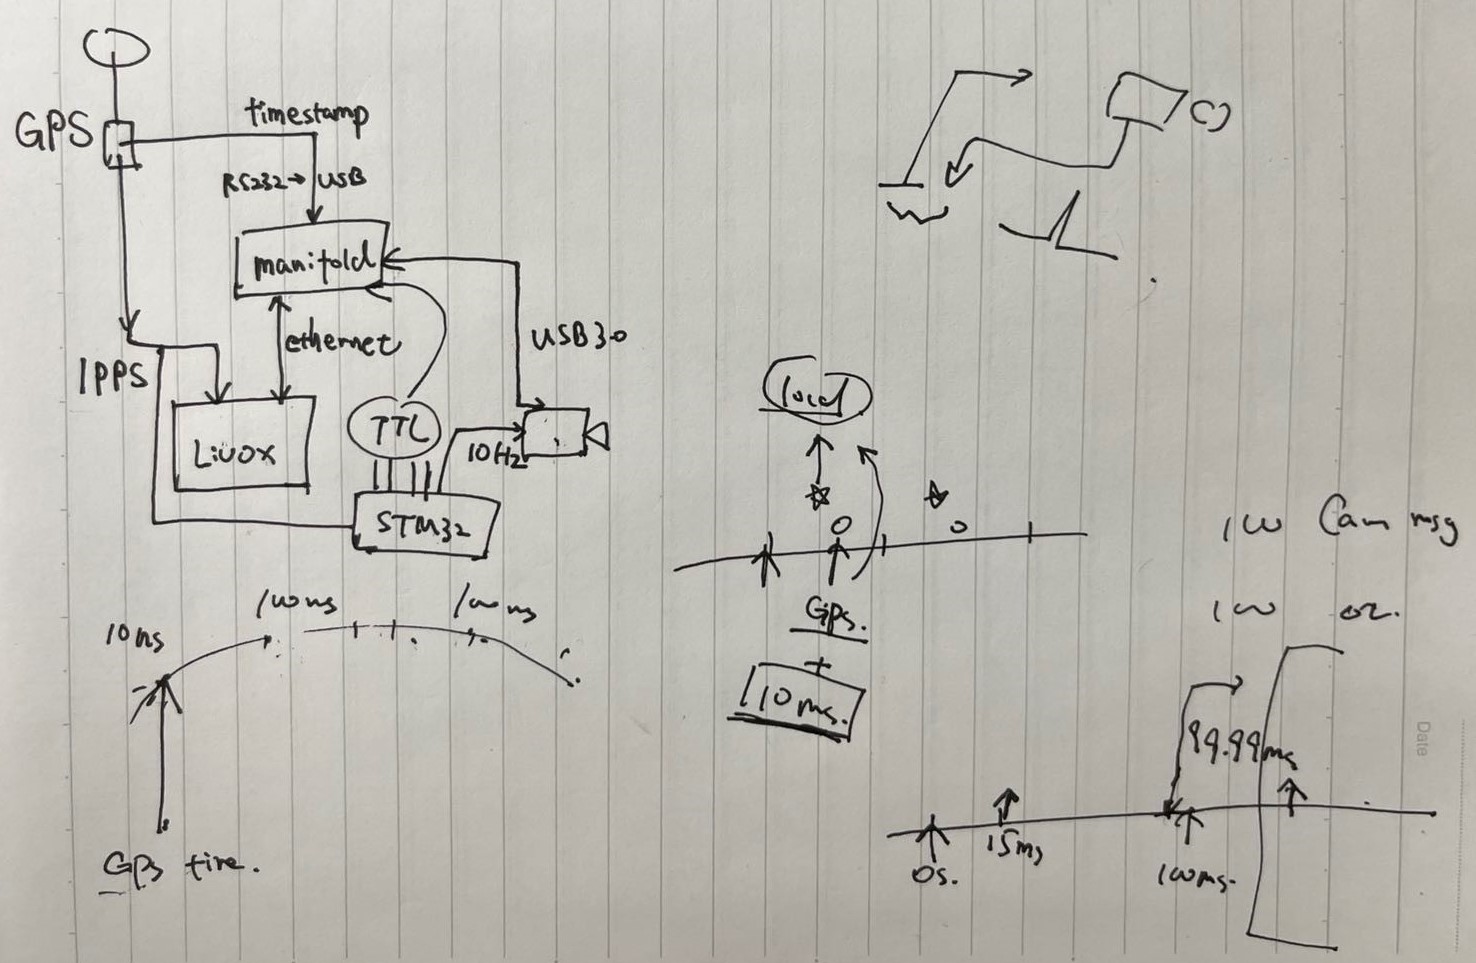 GPS
timestamp
RS232→USB
manifold
ethernet
USB3.0
1PPS
Livox
TTL
10Hz
STM32
100ms
100ms
10ms
GPS time.
local
Gps.
+
10ms.
100 Cam msg
100
99.99ms
0s.
15ms
100ms.
Date